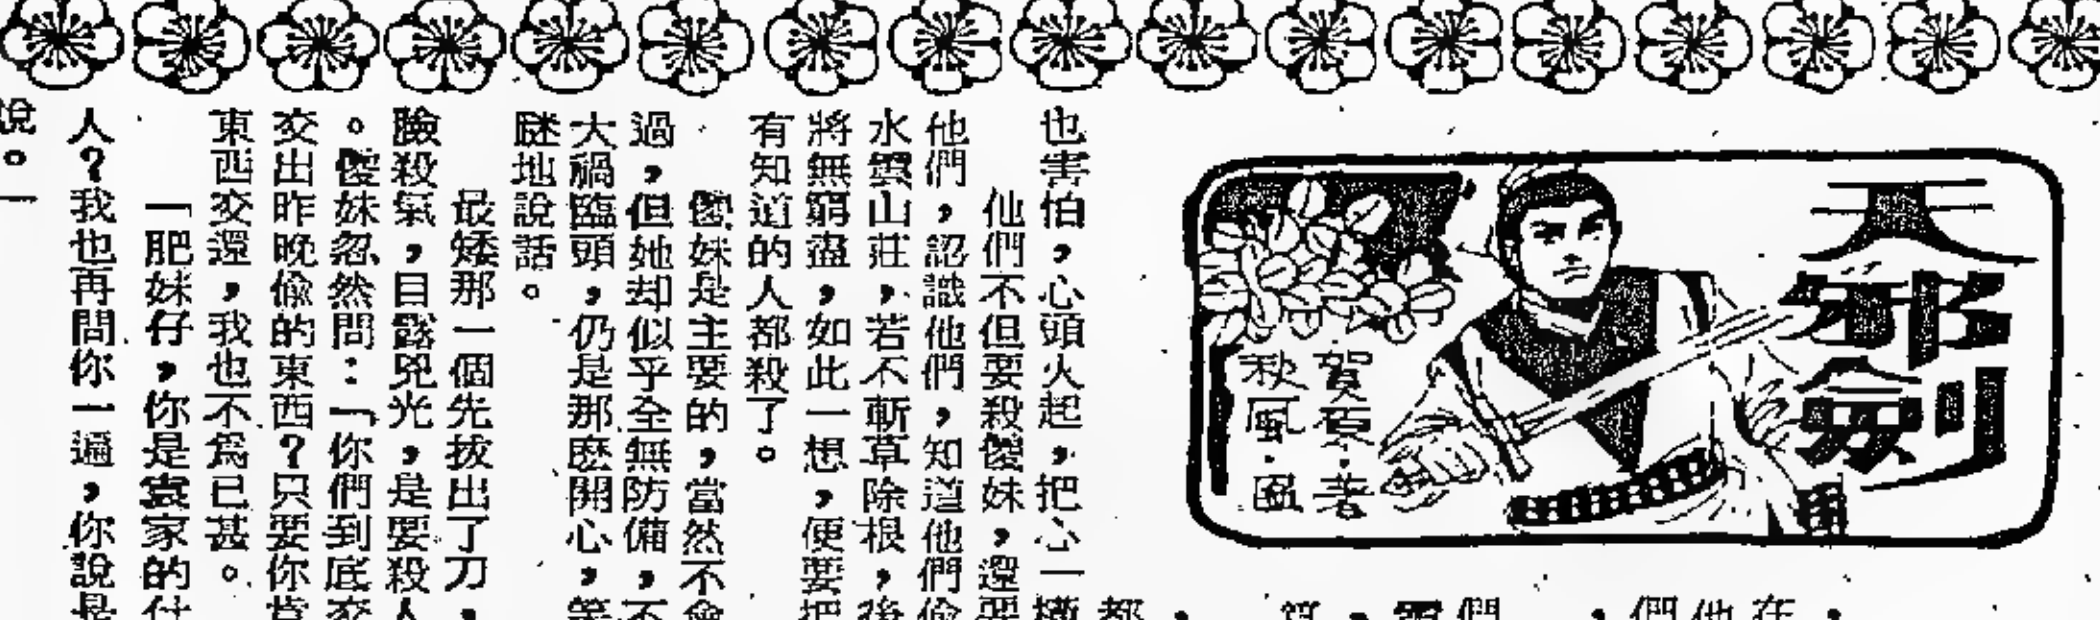 天邪劍
賀原.著
秋風.圖
，在他們，
們雲，
都，
也害怕，心頭火起，把心一橫
他們不但要殺傻妹，還要
他們，認識他們，知道他們偷
水雲山莊，若不斬草除根，後
將無窮盡，如此一想，便要把
有知道的人都殺了。
傻妹是主要的，當然不會
過，但她却似乎全無防備，不
大禍臨頭，仍是那麽開心，笑
瞇地說話。
最矮那一個先拔出了刀，
臉殺氣，目露兇光，是要殺人
。傻妹忽然問：「你們到底交
交出昨晚偷的東西？只要你肯
東西交還，我也不爲已甚。
「肥妹仔，你是袁家的什
人？我也再問你一遍，你說是
說。一